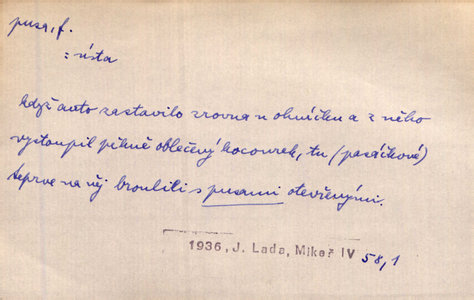 pusa, f.
= ústa
když auto zastavilo zrovna u ohníčku a z něho
vystoupil pěkně oblečený kocourek, tu (pasáčkové)
teprve na něj broulili s pusami otevřenými.
1936, J. Lada, Mikeš IV 58,1